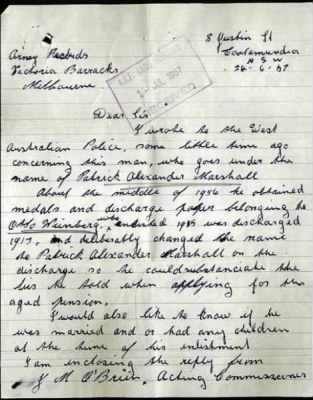 8 Austin St
Army Records
Cootamundra
Victoria Barracks
N S W
Melbourne
26-6-57
1957
RECEIVED
Dear Sir
I wrote to the West
Australian Police, some little time ago
concerning this man, who goes under the
name of Patrick Alexander Marshall
About the middle of 1956 he obtained
medals and discharge paper belonging to
Otto Weinberg, who enlisted 1915 was discharged
1917, and deliberately changed the name
to Patrick Alexander Marshall on the
discharge so he could substanciate the
lies he told when applying for the
aged pension.
I would also like to know if he
was married and or had any children
at the time of his enlistment
I am enclosing the reply from
J M O'Brien, Acting Commissioner